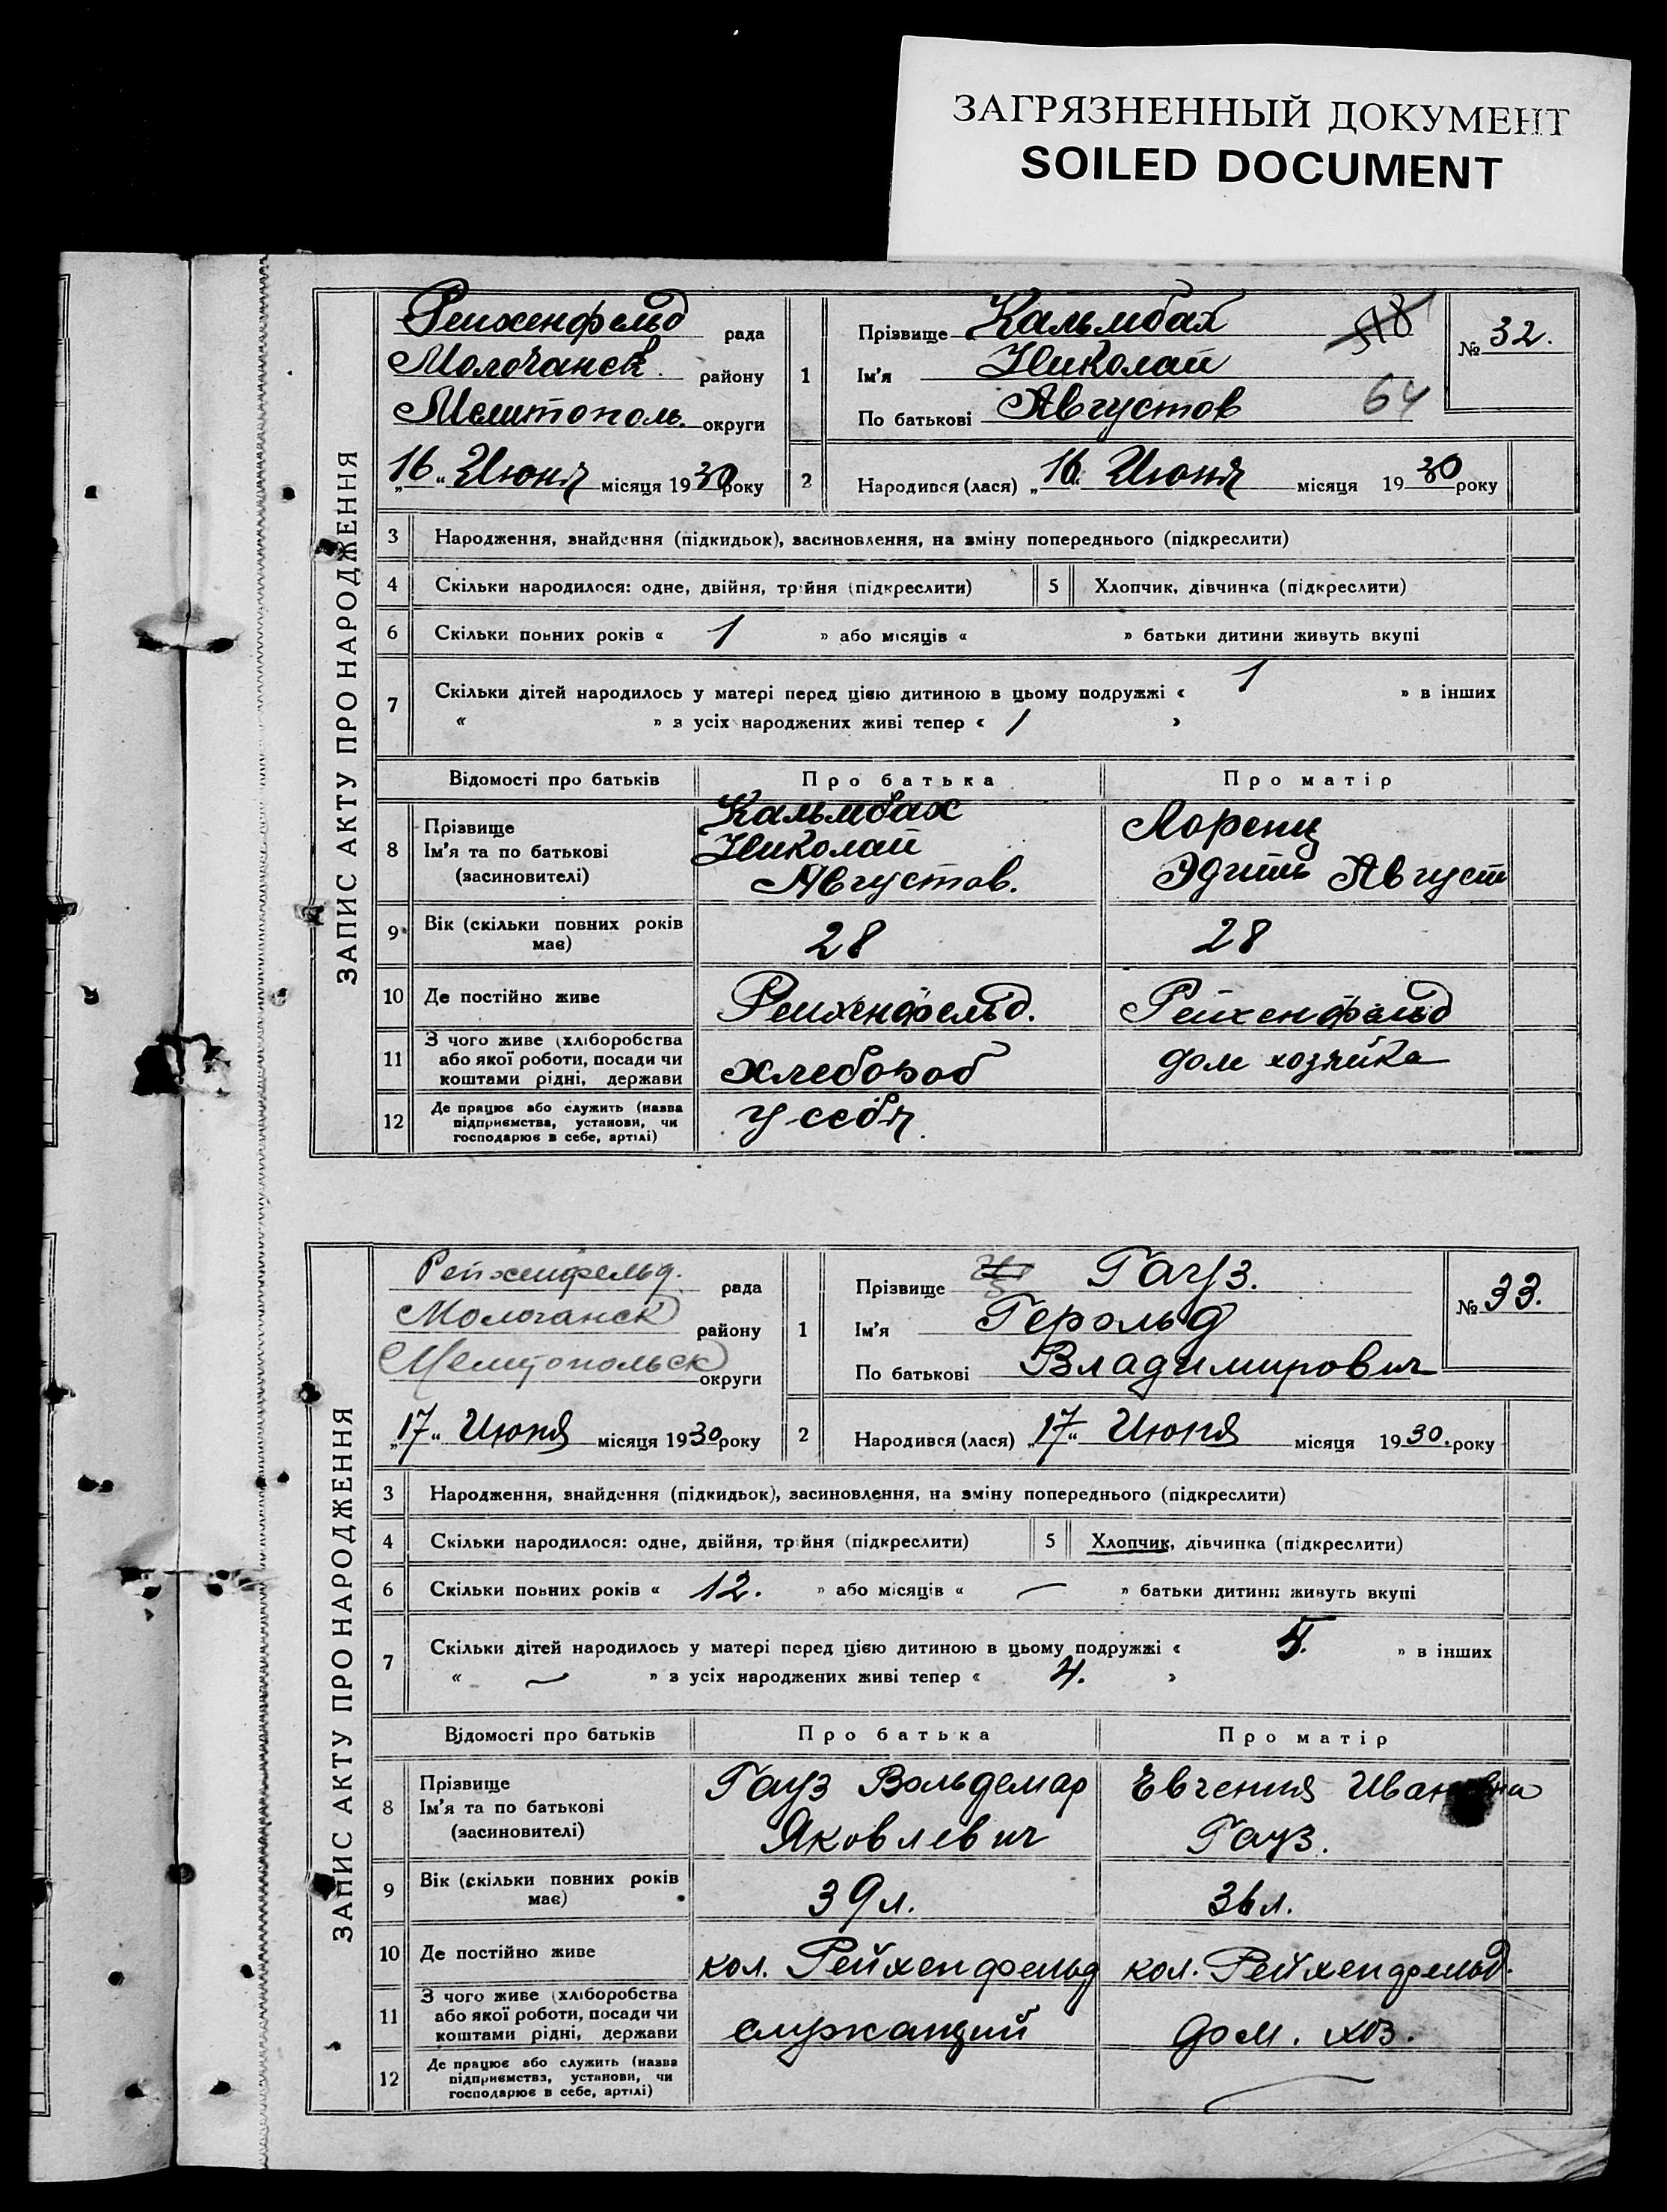 ЗАГРЯЗНЕННЫЙ ДОКУМЕНТ
SOILED DOCUMENT
ЗАПИС АКТУ ПРО НАРОДЖЕННЯ
Рейхенфельд рада
Молочанск. району
Мелитополь. округи
„16“ Июня місяця 1930 року
1
Прізвище Кальмбах
Ім'я Николай
По батькові Августов
64
№ 32.
2
Народився (лася) „16“ Июня місяця 1930 року
3 Народження, знайдення (підкидьок), засиновлення, на зміну попереднього (підкреслити)
4 Скільки народилося: одне, двійня, трійня (підкреслити) 5 Хлопчик, дівчинка (підкреслити)
6 Скільки повних років « 1 » або місяців « » батьки дитини живуть вкупі
7 Скільки дітей народилось у матері перед цією дитиною в цьому подружжі « 1 » в інших
« » з усіх народжених живі тепер « 1 »
Відомості про батьків Про батька Про матір
8 Прізвище
Ім'я та по батькові
(засиновителі)
Кальмбах
Николай
Августов.
Лоренц
Эдит Август
9 Вік (скільки повних років
має)
28 28
10 Де постійно живе Рейхенфельд. Рейхенфельд
11 З чого живе (хліборобства
або якої роботи, посади чи
коштами рідні, держави
хлебороб дом хозяйка
12 Де працює або служить (назва
підприємства, установи, чи
господарює в себе, артілі)
у себя.
ЗАПИС АКТУ ПРО НАРОДЖЕННЯ
Рейхенфельд. рада
Молочанск району
Мелитопольск округи
„17“ Июня місяця 1930 року
1
Прізвище Гауз.
Ім'я Герольд
По батькові Владимирович
№ 33.
2
Народився (лася) „17“ Июня місяця 1930. року
3 Народження, знайдення (підкидьок), засиновлення, на зміну попереднього (підкреслити)
4 Скільки народилося: одне, двійня, трійня (підкреслити) 5 Хлопчик, дівчинка (підкреслити)
6 Скільки повних років « 12. » або місяців « — » батьки дитини живуть вкупі
7 Скільки дітей народилось у матері перед цією дитиною в цьому подружжі « » в інших
« — » з усіх народжених живі тепер « 4. »
Відомості про батьків Про батька Про матір
8 Прізвище
Ім'я та по батькові
(засиновителі)
Гауз Вольдемар
Яковлевич
Евгения Ивановна
Гауз.
9 Вік (скільки повних років
має)
39 л. 36 л.
10 Де постійно живе кол. Рейхенфельд кол. Рейхенфельд.
11 З чого живе (хліборобства
або якої роботи, посади чи
коштами рідні, держави
служащий дом. хоз.
12 Де працює або служить (назва
підприємства, установи, чи
господарює в себе, артілі)